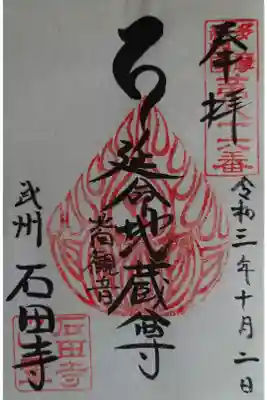 奉拝
令和三年十月二日
延命地蔵尊
武州 石田寺
石田寺